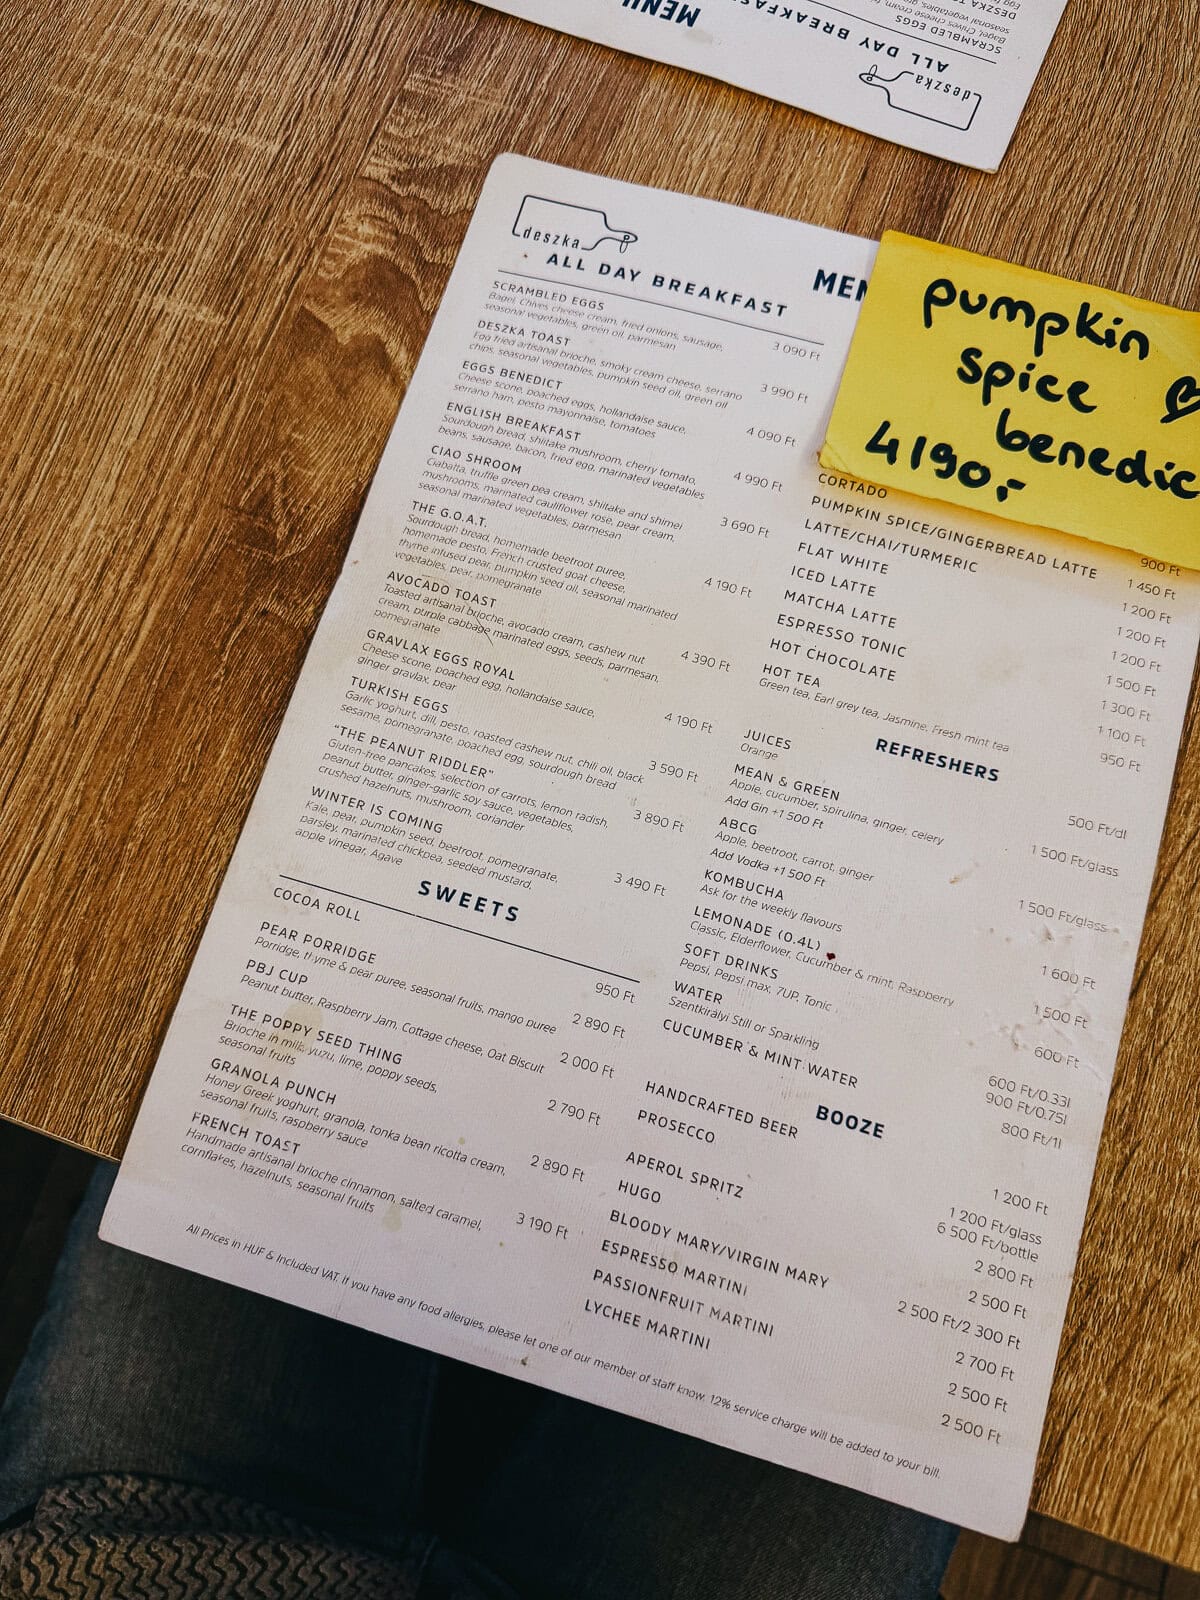 MENU
ALL DAY BREAKFAS
SCRAMBLED EGGS
deszka
deszka
ALL DAY BREAKFAST
MEN
SCRAMBLED EGGS
Bagel, Chives cheese cream, fried onions, sausage,
seasonal vegetables, green oil, parmesan
3 090 Ft
DESZKA TOAST
Egg fried artisanal brioche, smoky cream cheese, serrano
chips, seasonal vegetables, pumpkin seed oil, green oil
3 990 Ft
EGGS BENEDICT
Cheese scone, poached eggs, hollandaise sauce,
serrano ham, pesto mayonnaise, tomatoes
4 090 Ft
ENGLISH BREAKFAST
Sourdough bread, shiitake mushroom, cherry tomato,
beans, sausage, bacon, fried egg, marinated vegetables
4 990 Ft
CIAO SHROOM
Ciabatta, truffle green pea cream, shiitake and shimeji
mushrooms, marinated cauliflower rose, pear cream,
seasonal marinated vegetables, parmesan
3 690 Ft
THE G.O.A.T.
Sourdough bread, homemade beetroot puree,
homemade pesto, French crusted goat cheese,
thyme infused pear, pumpkin seed oil, seasonal marinated
vegetables, pear, pomegranate
4 190 Ft
AVOCADO TOAST
Toasted artisanal brioche, avocado cream, cashew nut
cream, purple cabbage marinated eggs, seeds, parmesan,
pomegranate
4 390 Ft
GRAVLAX EGGS ROYAL
Cheese scone, poached egg, hollandaise sauce,
ginger gravlax, pear
4 190 Ft
TURKISH EGGS
Garlic yoghurt, dill, pesto, roasted cashew nut, chili oil, black
sesame, pomegranate, poached egg, sourdough bread
3 590 Ft
"THE PEANUT RIDDLER"
Gluten-free pancakes, selection of carrots, lemon radish,
peanut butter, ginger-garlic soy sauce, vegetables,
crushed hazelnuts, mushroom, coriander
3 890 Ft
WINTER IS COMING
Kale, pear, pumpkin seed, beetroot, pomegranate,
parsley, marinated chickpea, seeded mustard,
apple vinegar, Agave
3 490 Ft
SWEETS
COCOA ROLL
950 Ft
PEAR PORRIDGE
Porridge, thyme & pear puree, seasonal fruits, mango puree
2 890 Ft
PBJ CUP
Peanut butter, Raspberry Jam, Cottage cheese, Oat Biscuit
2 000 Ft
THE POPPY SEED THING
Brioche in milk, yuzu, lime, poppy seeds,
seasonal fruits
2 790 Ft
GRANOLA PUNCH
Honey Greek yoghurt, granola, tonka bean ricotta cream,
seasonal fruits, raspberry sauce
2 890 Ft
FRENCH TOAST
Handmade artisanal brioche cinnamon, salted caramel,
cornflakes, hazelnuts, seasonal fruits
3 190 Ft
pumpkin
spice
benedic
4190,-
CORTADO
900 Ft
PUMPKIN SPICE/GINGERBREAD LATTE
1 450 Ft
LATTE/CHAI/TURMERIC
1 200 Ft
FLAT WHITE
1 200 Ft
ICED LATTE
1 200 Ft
MATCHA LATTE
1 500 Ft
ESPRESSO TONIC
1 300 Ft
HOT CHOCOLATE
1 100 Ft
HOT TEA
950 Ft
Green tea, Earl grey tea, Jasmine, Fresh mint tea
REFRESHERS
JUICES
Orange
500 Ft/dl
MEAN & GREEN
Apple, cucumber, spirulina, ginger, celery
Add Gin +1 500 Ft
1 500 Ft/glass
ABCG
Apple, beetroot, carrot, ginger
Add Vodka +1 500 Ft
1 500 Ft/glass
KOMBUCHA
Ask for the weekly flavours
1 600 Ft
LEMONADE (0.4L)
Classic, Elderflower, Cucumber & mint, Raspberry
1 500 Ft
SOFT DRINKS
Pepsi, Pepsi max, 7UP, Tonic
600 Ft
WATER
Szentkirályi Still or Sparkling
600 Ft/0.33l
900 Ft/0.75l
CUCUMBER & MINT WATER
800 Ft/1l
BOOZE
HANDCRAFTED BEER
1 200 Ft
PROSECCO
1 200 Ft/glass
6 500 Ft/bottle
APEROL SPRITZ
2 800 Ft
HUGO
2 500 Ft
BLOODY MARY/VIRGIN MARY
2 500 Ft/2 300 Ft
ESPRESSO MARTINI
2 700 Ft
PASSIONFRUIT MARTINI
2 500 Ft
LYCHEE MARTINI
2 500 Ft
All Prices in HUF & Included VAT. If you have any food allergies, please let one of our member of staff know. 12% service charge will be added to your bill.